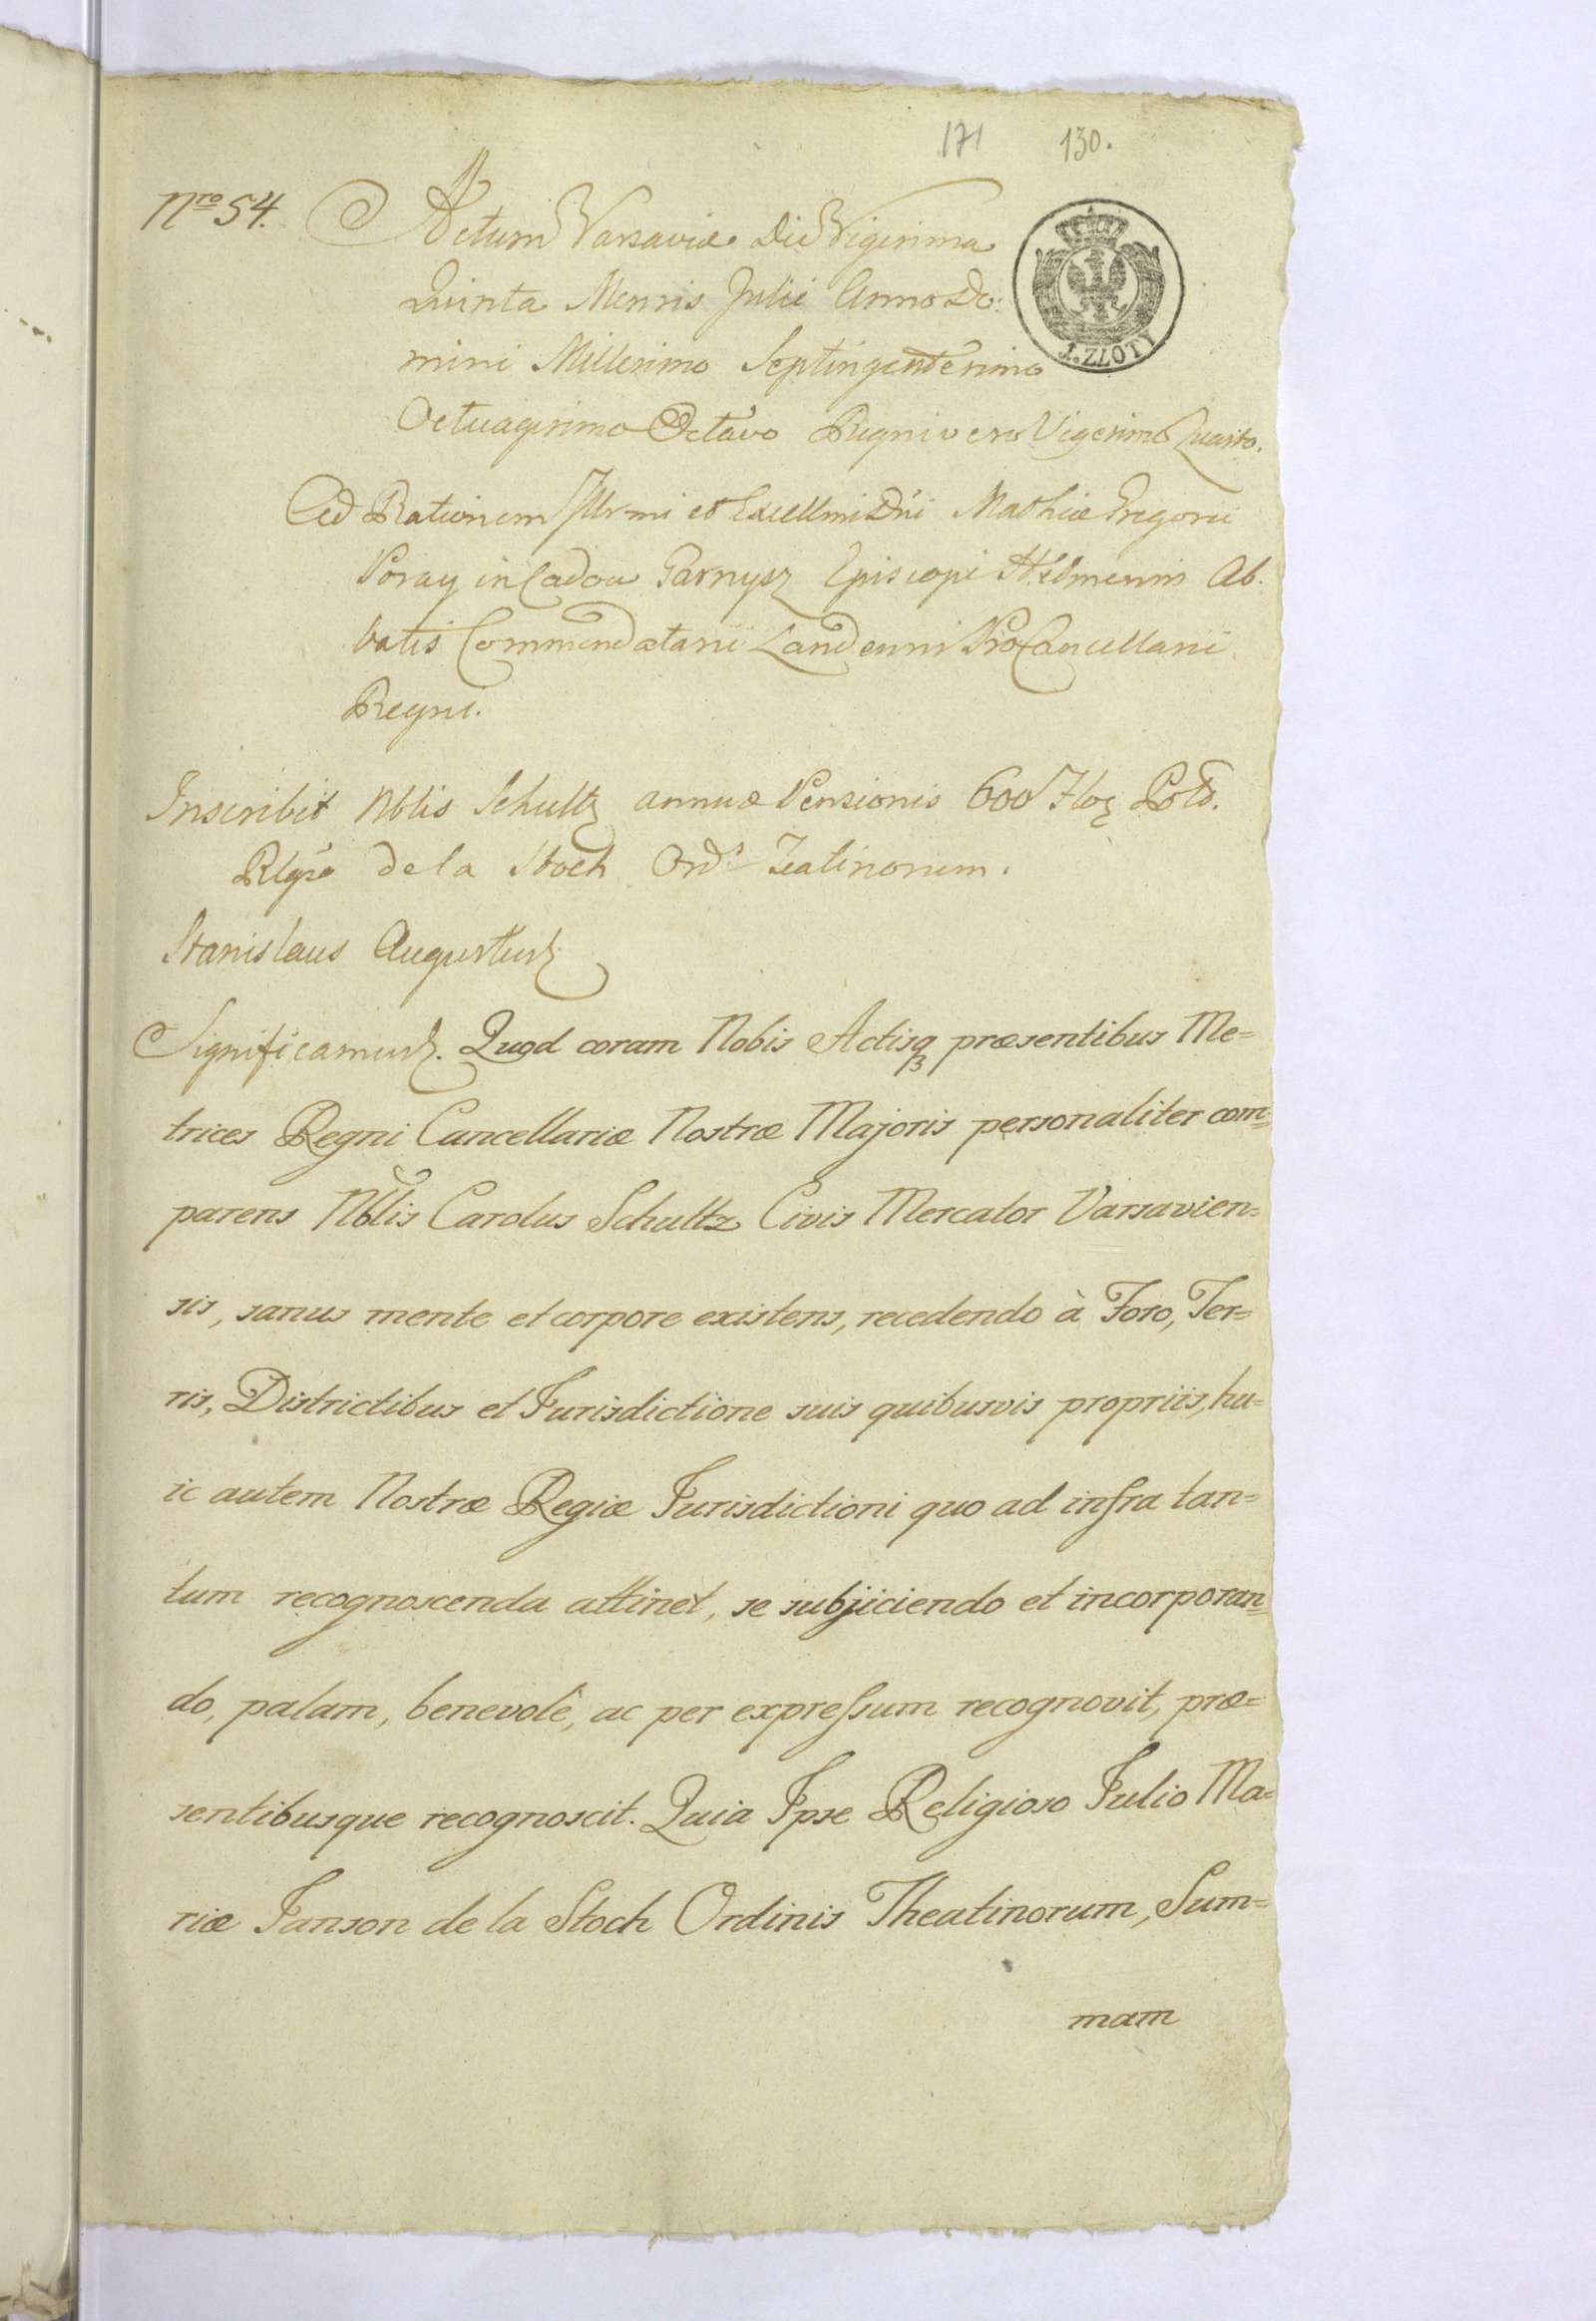 171 130.
Nro 54. Actum Varsaviæ Die Vigesima
Quinta Mensis Julii Anno Do:
mini Millesimo Septingentesimo
Octuagesimo Octavo Regni vero Vigesimo Quarto.
1. ZŁOTY
Ad Rationem Illrmi et Excellmi Dni Mathiæ Gregorii
Poray in Garnysz Episcopi Ab.
batis Commendatarii Landensis ProCancellarii
Regni.
Inscribit Nblis Schultz annuæ Pensionis 600 Pold.
de la Stoch Ord: Teatinorum.
Stanislaus Augustus
Significamus. Quod coram Nobis Actisq præsentibus Me=
trices Regni Cancellariæ Nostræ Majoris personaliter com=
parens Nblis Carolus Schultz Civis Mercator Varsavien=
sis, sanus mente et corpore existens, recedendo à Foro, Ter=
ris, Districtibus et Jurisdictione suis quibusvis propriis, hu=
ic autem Nostræ Regiæ Jurisdictioni quo ad infra tan=
tum recognoscenda attinet, se subjiciendo et incorporan=
do, palam, benevolè, ac per expressum recognovit, præ=
sentibusque recognoscit. Quia Ipse Religioso Julio Ma=
riæ Janson de la Stoch Ordinis Theatinorum, Sum=
mam